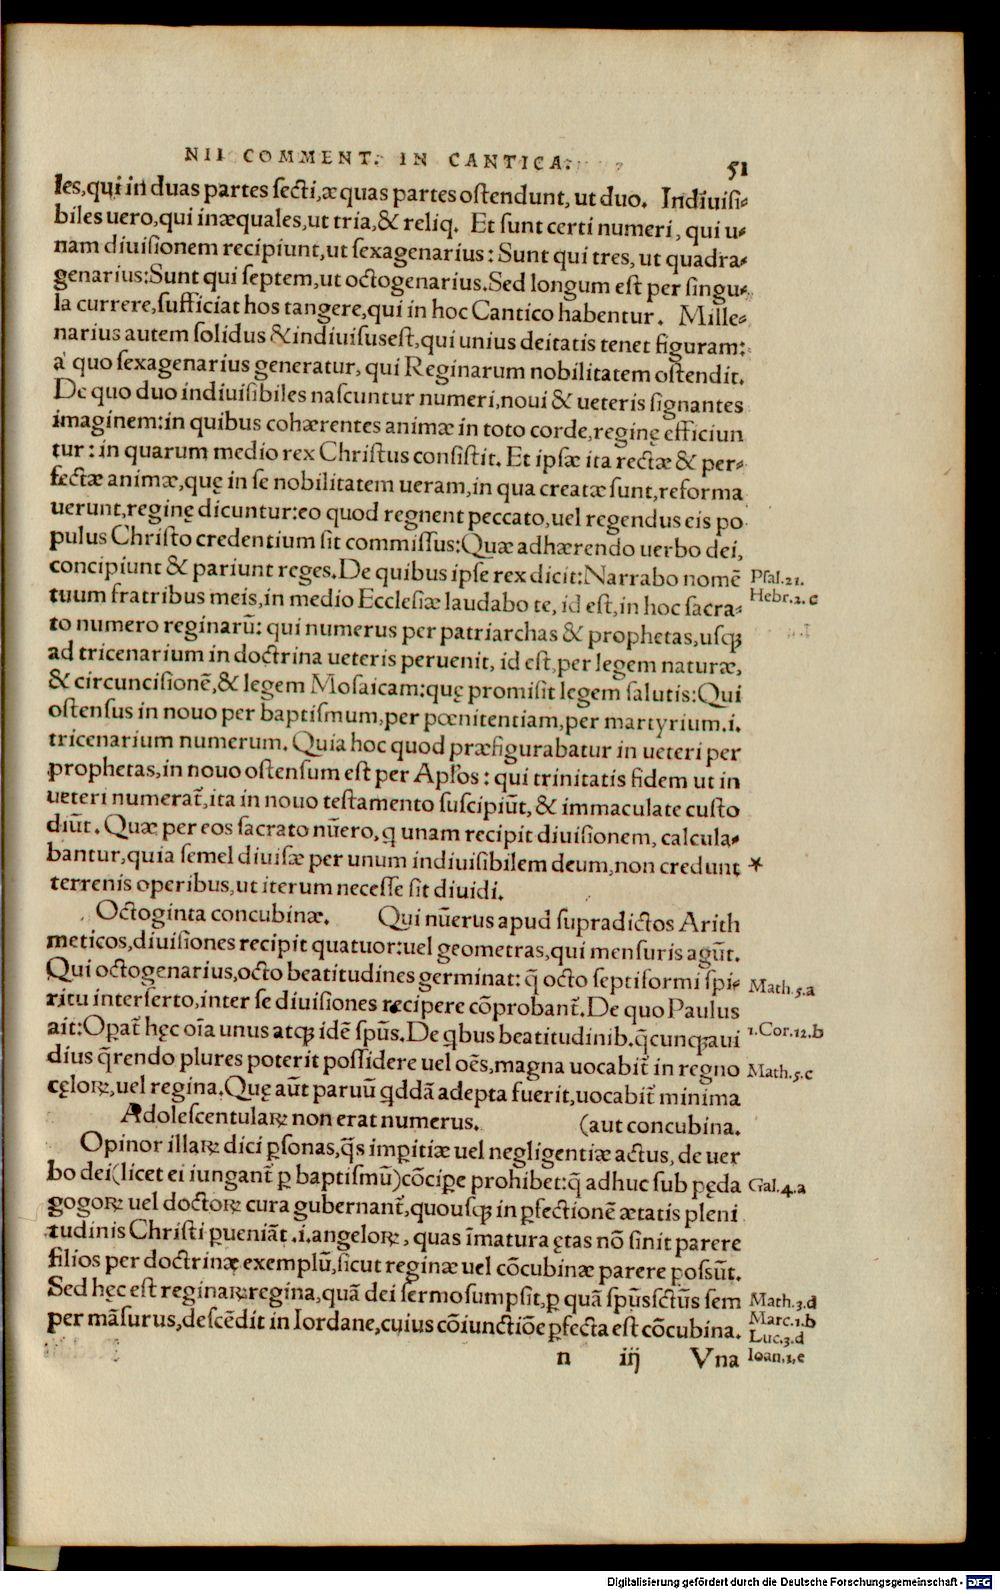 NII COMMENT. IN CANTICA. 51
les,qui in duas partes ſecti,æquas partes oſtendunt, ut duo. Indiuiſi-
biles uero,qui inæquales,ut tria,& reliq. Et ſunt certi numeri, qui u-
nam diuiſionem recipiunt,ut ſexagenarius: Sunt qui tres, ut quadra-
genarius:Sunt qui ſeptem,ut octogenarius.Sed longum eſt per ſingu-
la currere,ſufficiat hos tangere,qui in hoc Cantico habentur. Mille-
narius autem ſolidus &indiuiſuseſt,qui unius deitatis tenet figuram:
a quo ſexagenarius generatur, qui Reginarum nobilitatem oſtendit.
De quo duo indiuiſibiles naſcuntur numeri,noui & ueteris ſignantes
imaginem:in quibus cohærentes animæ in toto corde,reginę efficiun
tur: in quarum medio rex Chriſtus conſiſtit. Et ipſæ ita rectæ & per-
fectæ animæ,quę in ſe nobilitatem ueram,in qua creatæ ſunt,reforma
uerunt,reginę dicuntur:eo quod regnent peccato,uel regendus eis po
pulus Chriſto credentium ſit commiſſus:Quæ adhærendo uerbo dei,
concipiunt & pariunt reges.De quibus ipſe rex dicit:Narrabo nomē Pſal.21.
tuum fratribus meis,in medio Eccleſiæ laudabo te, id eſt,in hoc ſacra- Hebr.2.c
to numero reginarū: qui numerus per patriarchas & prophetas,uſqꝫ
ad tricenarium in doctrina ueteris peruenit, id eſt,per legem naturæ,
& circunciſionē,& legem Moſaicam:quę promiſit legem ſalutis:Qui
oſtenſus in nouo per baptiſmum,per pœnitentiam,per martyrium.i.
tricenarium numerum. Quia hoc quod præfigurabatur in ueteri per
prophetas,in nouo oſtenſum eſt per Apľos: qui trinitatis fidem ut in
ueteri numerat̃,ita in nouo teſtamento ſuſcipiūt, & immaculate cuſto
diūt. Quæ per eos ſacrato nūero, ꝗ unam recipit diuiſionem, calcula-
bantur,quia ſemel diuiſæ per unum indiuiſibilem deum,non credunt *
terrenis operibus,ut iterum neceſſe ſit diuidi.
Octoginta concubinæ. Qui nūerus apud ſupradictos Arith
meticos,diuiſiones recipit quatuor:uel geometras,qui menſuris agūt.
Qui octogenarius,octo beatitudines germinat: q̄ octo ſeptiformi ſpi- Math.5.a
ritu interſerto,inter ſe diuiſiones recipere cōprobant̃. De quo Paulus
ait:Opat̃ hęc oīa unus atqꝫ idē ſpūs.De ꝗbus beatitudinib.q̄cunqꝫaui 1.Cor.12.b
dius q̄rendo plures poterit poſſidere uel oēs,magna uocabit̃ in regno Math.5.c
cęloꝝ,uel regina.Quę aūt paruū ꝗddā adepta fuerit,uocabit̃ minima
Adoleſcentulaꝝ non erat numerus. (aut concubina.
Opinor illaꝝ dici ꝑſonas,q̄s imꝑitiæ uel negligentiæ actus, de uer
bo dei(licet ei iungant̃ ꝑ baptiſmū)cōciꝑe prohibet:q̄ adhuc ſub pęda Gal.4.a
gogoꝝ uel doctoꝝ cura gubernant̃,quouſqꝫ in ꝑfectionē ætatis pleni
tudinis Chriſti ꝑueniāt .i.angeloꝝ, quas īmatura ętas nō ſinit parere
filios per doctrinæ exemplū,ſicut reginæ uel cōcubinæ parere poſſūt.
Sed hęc eſt reginaꝝ regina,quā dei ſermo ſumpſit,ꝑ quā ſpūsſctūs ſem Math.3.d
per māſurus,deſcēdit in Iordane,cuius cōiunctiōe ꝑfecta eſt cōcubina. Marc.1.b
Luc.3.d
n iij Vna Ioan.1,e
Digitalisierung gefördert durch die Deutsche Forschungsgemeinschaft - DFG